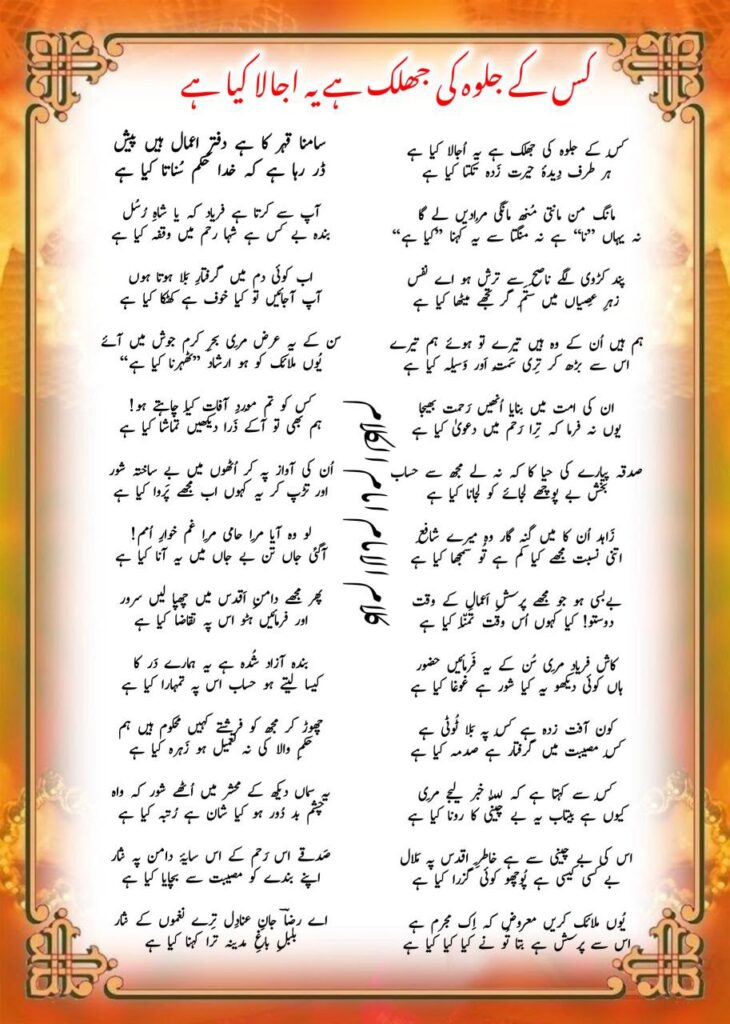 کس کے جلوہ کی جھلک ہے یہ اجالا کیا ہے
کس کے جلوہ کی جھلک ہے یہ اُجالا کیا ہے
ہر طرف دِیدۂ حیرت زَدہ تکتا کیا ہے
مانگ من مانتی مُنھ مانگی مرادیں لے گا
نہ یہاں ”نا“ ہے نہ منگتا سے یہ کہنا ”کیا ہے“
پند کڑوی لگے ناصح سے ترش ہو اے نفس
زہرِ عِصیاں میں ستمگر تجھے میٹھا کیا ہے
ہم ہیں اُن کے وہ ہیں تیرے تو ہوئے ہم تیرے
اس سے بڑھ کر تِری سَمت اَور وَسیلہ کیا ہے
ان کی امت میں بنایا اُنھیں رَحمت بھیجا
یوں نہ فرما کہ تِرا رَحم میں دعویٰ کیا ہے
صدقہ پیارے کی حیا کا کہ نہ لے مجھ سے حساب
بخش بے پوچھے لجائے کو لجانا کیا ہے
زَاہد اُن کا میں گنہ گار وہ میرے شافع
اتنی نسبت مجھے کیا کم ہے تو سمجھا کیا ہے
بے بسی ہو جو مجھے پرسشِ اَعمال کے وقت
دوستو! کیا کہوں اُس وقت تمنّا کیا ہے
کاش فریاد مری سُن کے یہ فَرمائیں حضور
ہاں کوئی دیکھو یہ کیا شور ہے غوغا کیا ہے
کون آفت زدہ ہے کس پہ بَلا ٹُوٹی ہے
کس مصیبت میں گرفتار ہے صدمہ کیا ہے
کس سے کہتا ہے کہ للہ خبر لیجے مری
کیوں ہے بیتاب یہ بے چینی کا رونا کیا ہے
اس کی بے چینی سے ہے خاطرِ اقدس پہ مَلال
بے کسی کیسی ہے پُوچھو کوئی گزرا کیا ہے
یُوں ملائک کریں معروض کہ اِک مجرم ہے
اس سے پرسش ہے بتا تُو نے کیا کیا کیا ہے
سامنا قہر کا ہے دفترِ اعمال ہیں پیش
ڈر رہا ہے کہ خدا حکم سُناتا کیا ہے
آپ سے کرتا ہے فریاد کہ یا شاہِ رُسُل
بندہ بے کس ہے شہا رحم میں وقفہ کیا ہے
اب کوئی دم میں گرفتارِ بَلا ہوتا ہوں
آپ آجائیں تو کیا خوف ہے کھٹکا کیا ہے
سن کے یہ عرض مری بحرِ کرم جوش میں آئے
یُوں ملائک کو ہو ارشاد ”ٹھہرنا کیا ہے“
کس کو تم موردِ آفات کیا چاہتے ہو!
ہم بھی تو آکے ذَرا دیکھیں تماشا کیا ہے
اُن کی آواز پہ کر اُٹھوں میں بے ساختہ شور
اور تڑپ کر یہ کہوں اب مجھے پَروا کیا ہے
لو وہ آیا مرا حامی مرا غم خوارِ اُمم!
آگئی جاں تنِ بے جاں میں یہ آنا کیا ہے
پھر مجھے دامنِ اَقدس میں چھپا لیں سرور
اور فرمائیں ہٹو اس پہ تقاضا کیا ہے
بندہ آزاد شُدہ ہے یہ ہمارے دَر کا
کیسا لیتے ہو حساب اس پہ تمہارا کیا ہے
چھوڑ کر مجھ کو فرشتے کہیں محکوم ہیں ہم
حکمِ والا کی نہ تعمیل ہو زَہرہ کیا ہے
یہ سماں دیکھ کے محشر میں اُٹھے شور کہ واہ
چشمِ بد دُور ہو کیا شان ہے رُتبہ کیا ہے
صَدقے اس رَحم کے اس سایۂ دامن پہ نثار
اپنے بندے کو مصیبت سے بچایا کیا ہے
اے رضاؔ جانِ عنادِل تِرے نغموں کے نثار
بلبلِ باغِ مدینہ ترا کہنا کیا ہے